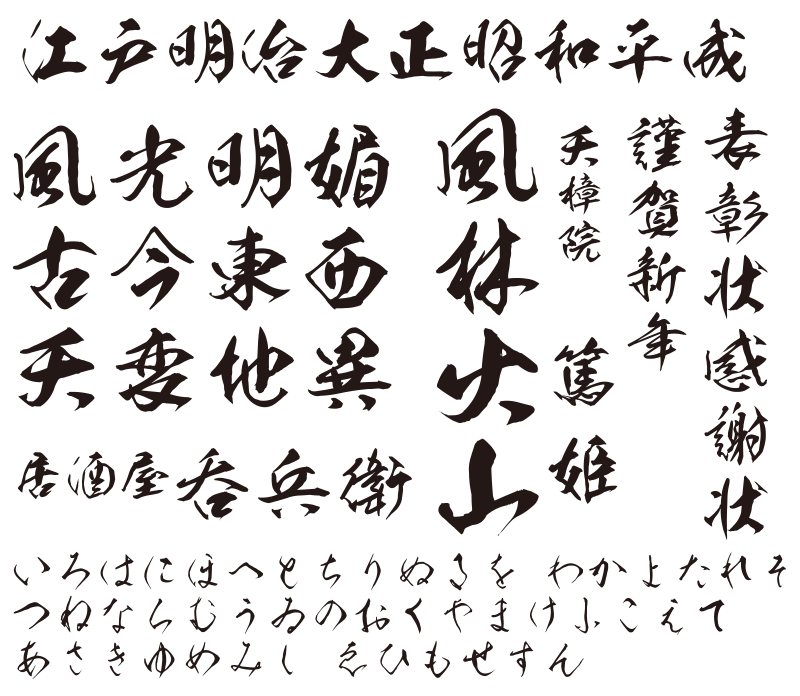 江戸明治大正昭和平成
風光明媚
古今東西
天変地異
風林火山
天樟院
篤姫
謹賀新年
表彰状感謝状
居酒屋呑兵衛
いろはにほへとちりぬるを わかよたれそ
つねならむうゐのおくやまけふこえて
あさきゆめみし ゑひもせすん